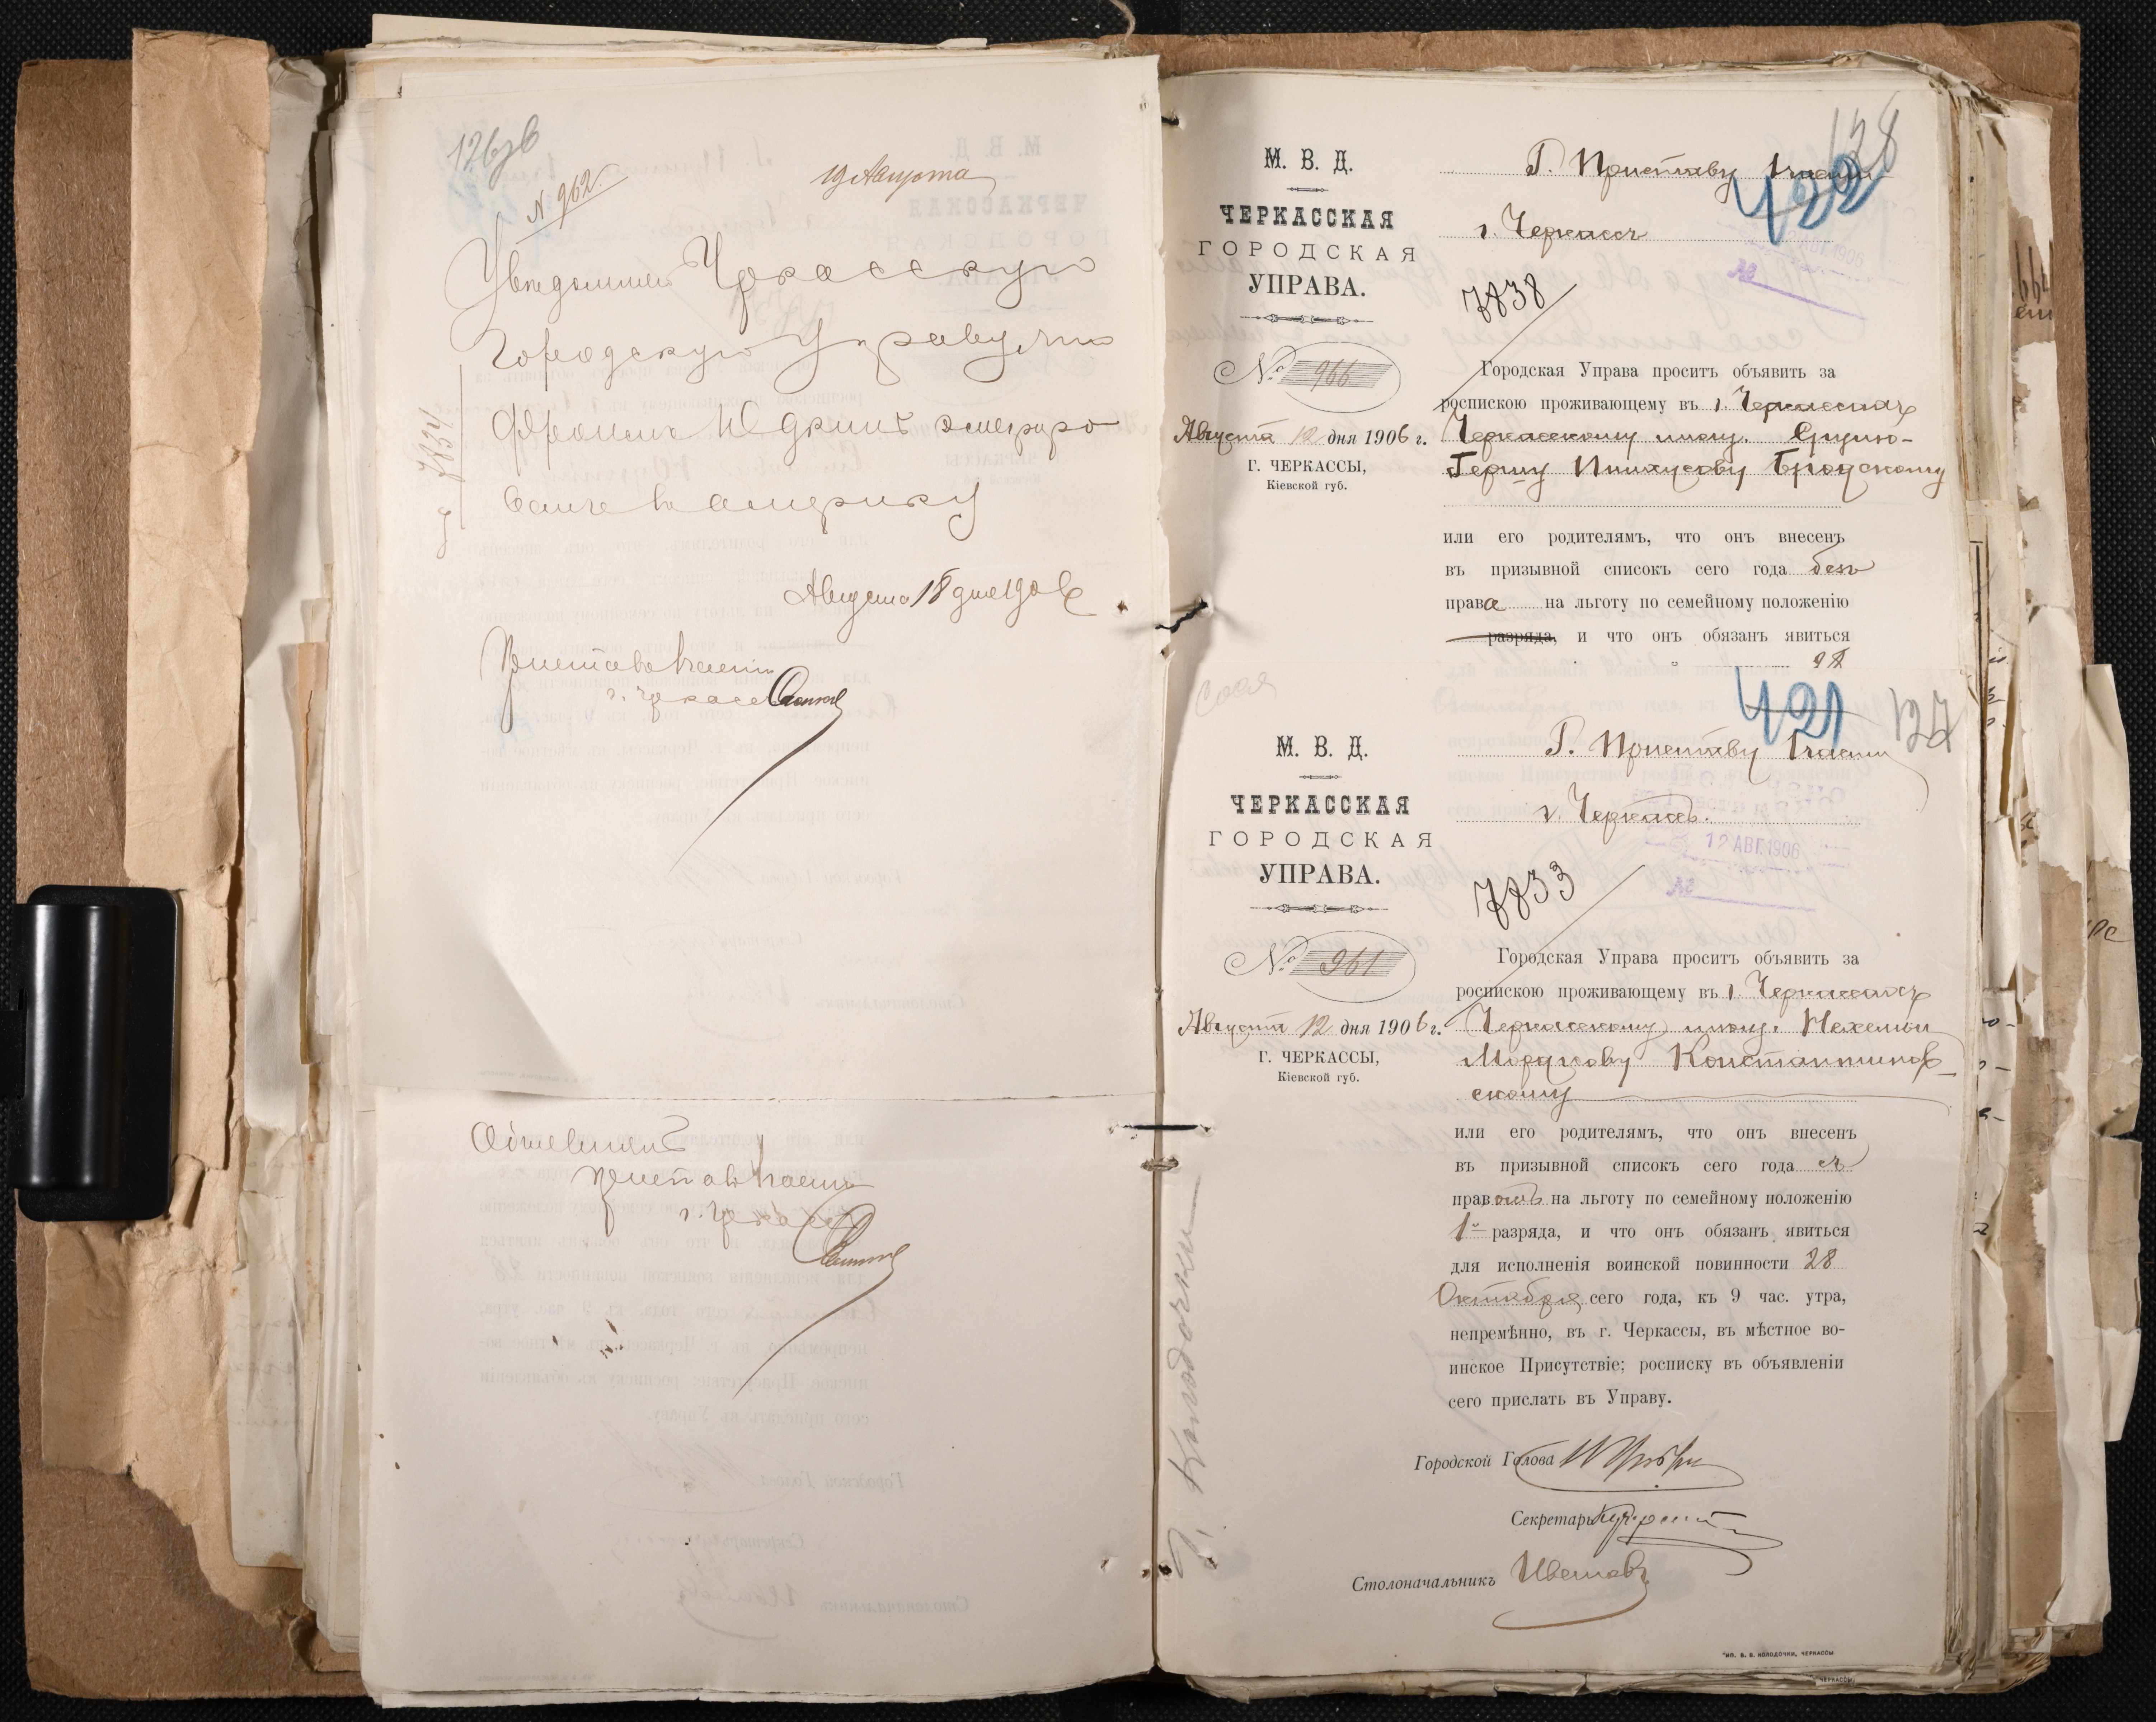 126об
N 962.
19 Августа
Уведомляю Черкасскую
Городскую Управу, что
Юдкинъ эмигриро
валъ въ Америку
№ 7834
Августа 18 дня 1906
Приставъ 1 части
г. Черкассъ
Приставъ 1 части
г. Черкассъ
128
422
М. В. Д.
ЧЕРКАССКАЯ
ГОРОДСКАЯ
УПРАВА.
№ 966
Августа 12 дня 1906 г.
Г. ЧЕРКАССЫ,
Кіевской губ.
Г. Приставу 1 части
г. Черкассъ
1906
№
7838
Городская Управа проситъ объявить за
роспискою проживающему въ г. Черкассахъ
Черкасскому мѣщ.
Гершу Пинхусову Бродскому
или его родителямъ, что онъ внесенъ
въ призывной списокъ сего года безъ
права на льготу по семейному положенію
разряда, и что онъ обязанъ явиться
28
421
127
М. В. Д.
ЧЕРКАССКАЯ
ГОРОДСКАЯ
УПРАВА.
№ 961
Августа 12 дня 1906 г.
Г. ЧЕРКАССЫ,
Кіевской губ.
Г. Приставу 1 части
г. Черкассъ.
12 АВГ. 1906
№
7833
Городская Управа проситъ объявить за
роспискою проживающему въ г. Черкассахъ
Черкасскому мѣщ. Нехемьи
Мордкову Константинов-
скому
или его родителямъ, что онъ внесенъ
въ призывной списокъ сего года съ
правомъ на льготу по семейному положенію
1го разряда, и что онъ обязанъ явиться
для исполненія воинской повинности 28
Октября сего года, къ 9 час. утра,
непремѣнно, въ г. Черкассы, въ мѣстное во-
инское Присутствіе; росписку въ объявленіи
сего прислать въ Управу.
Городской Голова
Секретарь
Столоначальникъ
Тип. В. В. КОЛОДОЧКИ, ЧЕРКАССЫ
ЧЕРКАССЫ